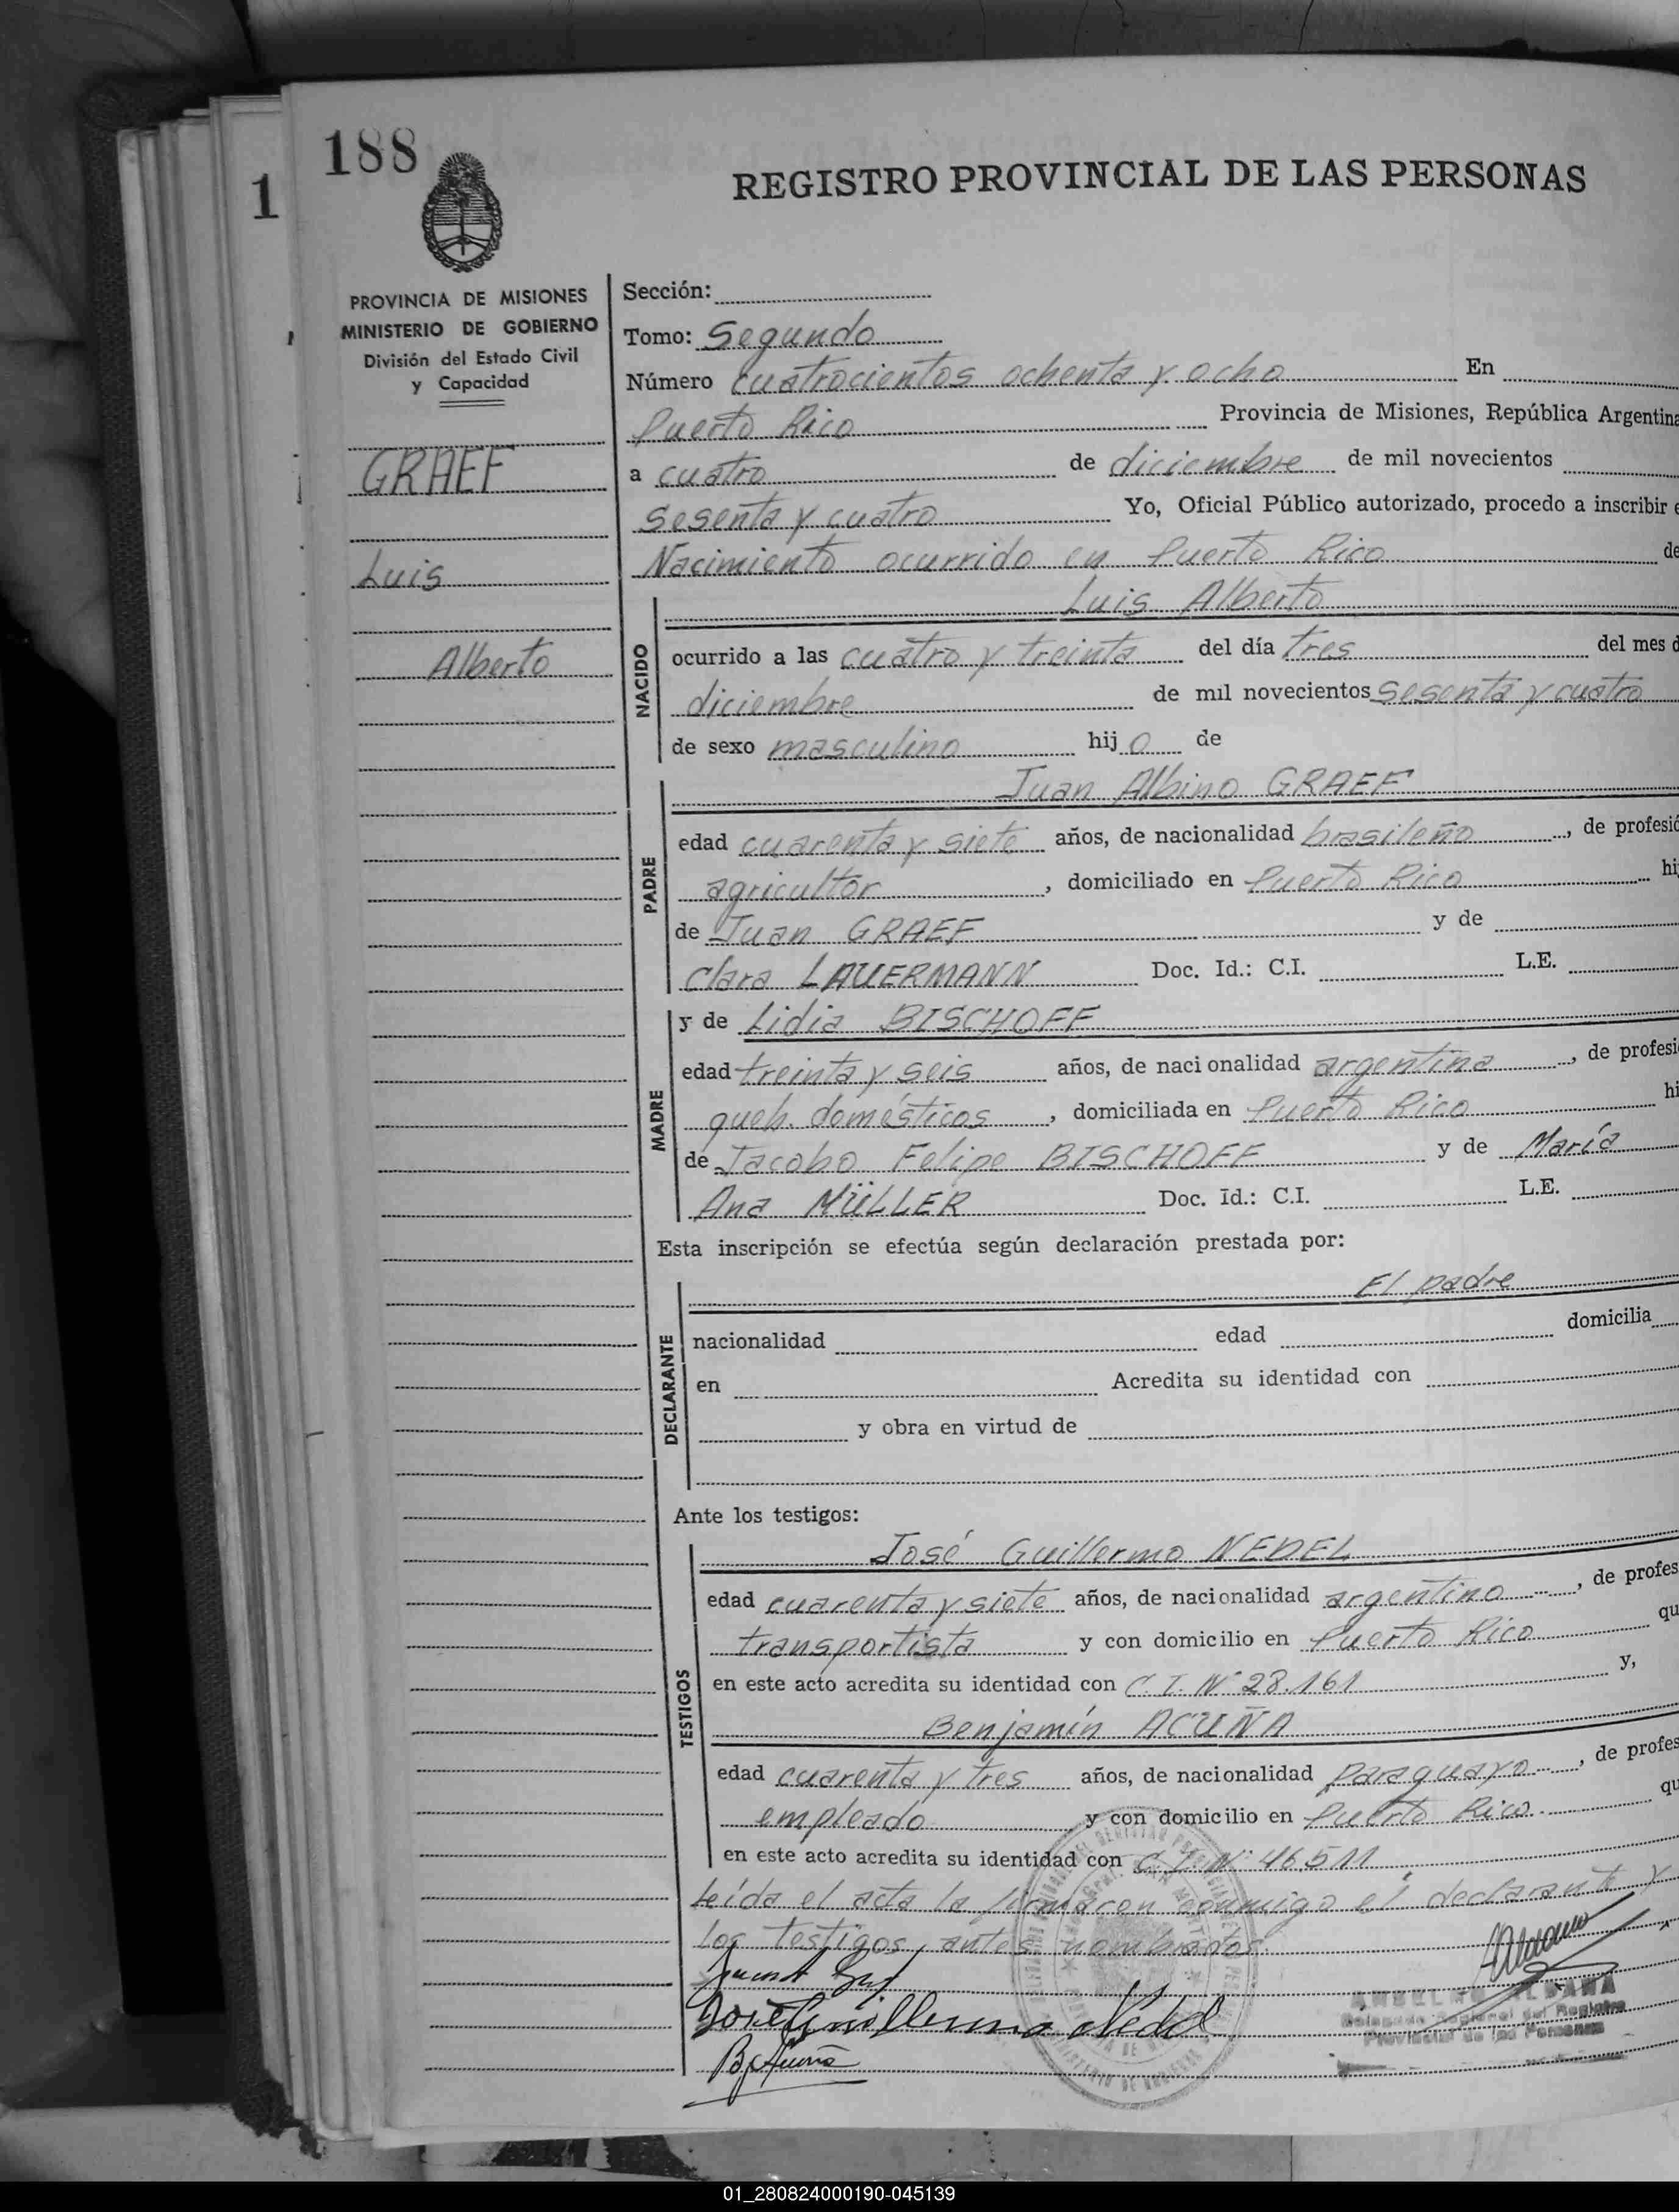 188
1
REGISTRO PROVINCIAL DE LAS PERSONAS
PROVINCIA DE MISIONES
MINISTERIO DE GOBIERNO
División del Estado Civil
y Capacidad
GRAEF
Luis
Alberto
Sección:
Tomo: Segundo
Número cuatrocientos ochenta y ocho En
Puerto Rico Provincia de Misiones, República Argentina
a cuatro de diciembre de mil novecientos
sesenta y cuatro Yo, Oficial Público autorizado, procedo a inscribir e
Nacimiento ocurrido en Puerto Rico de
NACIDO
Luis Alberto
ocurrido a las cuatro y treinta del día tres del mes d
diciembre de mil novecientos sesenta y cuatro
de sexo masculino hijo de
PADRE
Juan Albino GRAEF
edad cuarenta y siete años, de nacionalidad brasileño, de profesió
agricultor, domiciliado en Puerto Rico hij
de Juan GRAEF y de
Clara LAUERMANN Doc. Id.: C.I. L.E.
MADRE
y de Lidia BISCHOFF
edad treinta y seis años, de nacionalidad argentina, de profesi
queh. domésticos, domiciliada en Puerto Rico hi
de Jacobo Felipe BISCHOFF y de María
Ana MÜLLER Doc. Id.: C.I. L.E.
Esta inscripción se efectúa según declaración prestada por:
DECLARANTE
El padre
nacionalidad edad domicilia
en Acredita su identidad con
y obra en virtud de
Ante los testigos:
TESTIGOS
José Guillermo NEDEL
edad cuarenta y siete años, de nacionalidad argentino, de profes
transportista y con domicilio en Puerto Rico qu
en este acto acredita su identidad con C.I. N° 28.161 y,
Benjamín ACUÑA
edad cuarenta y tres años, de nacionalidad paraguayo, de profes
empleado y con domicilio en Puerto Rico qu
en este acto acredita su identidad con C.I. N° 46511
Leída el acta la firmaron conmigo el declarante y
los testigos antes nombrados.
José Guillermo Nedel
B. Acuña
ALDANA
Delegado Regional del Registro
Provincial de las Personas
01_280824000190-045139